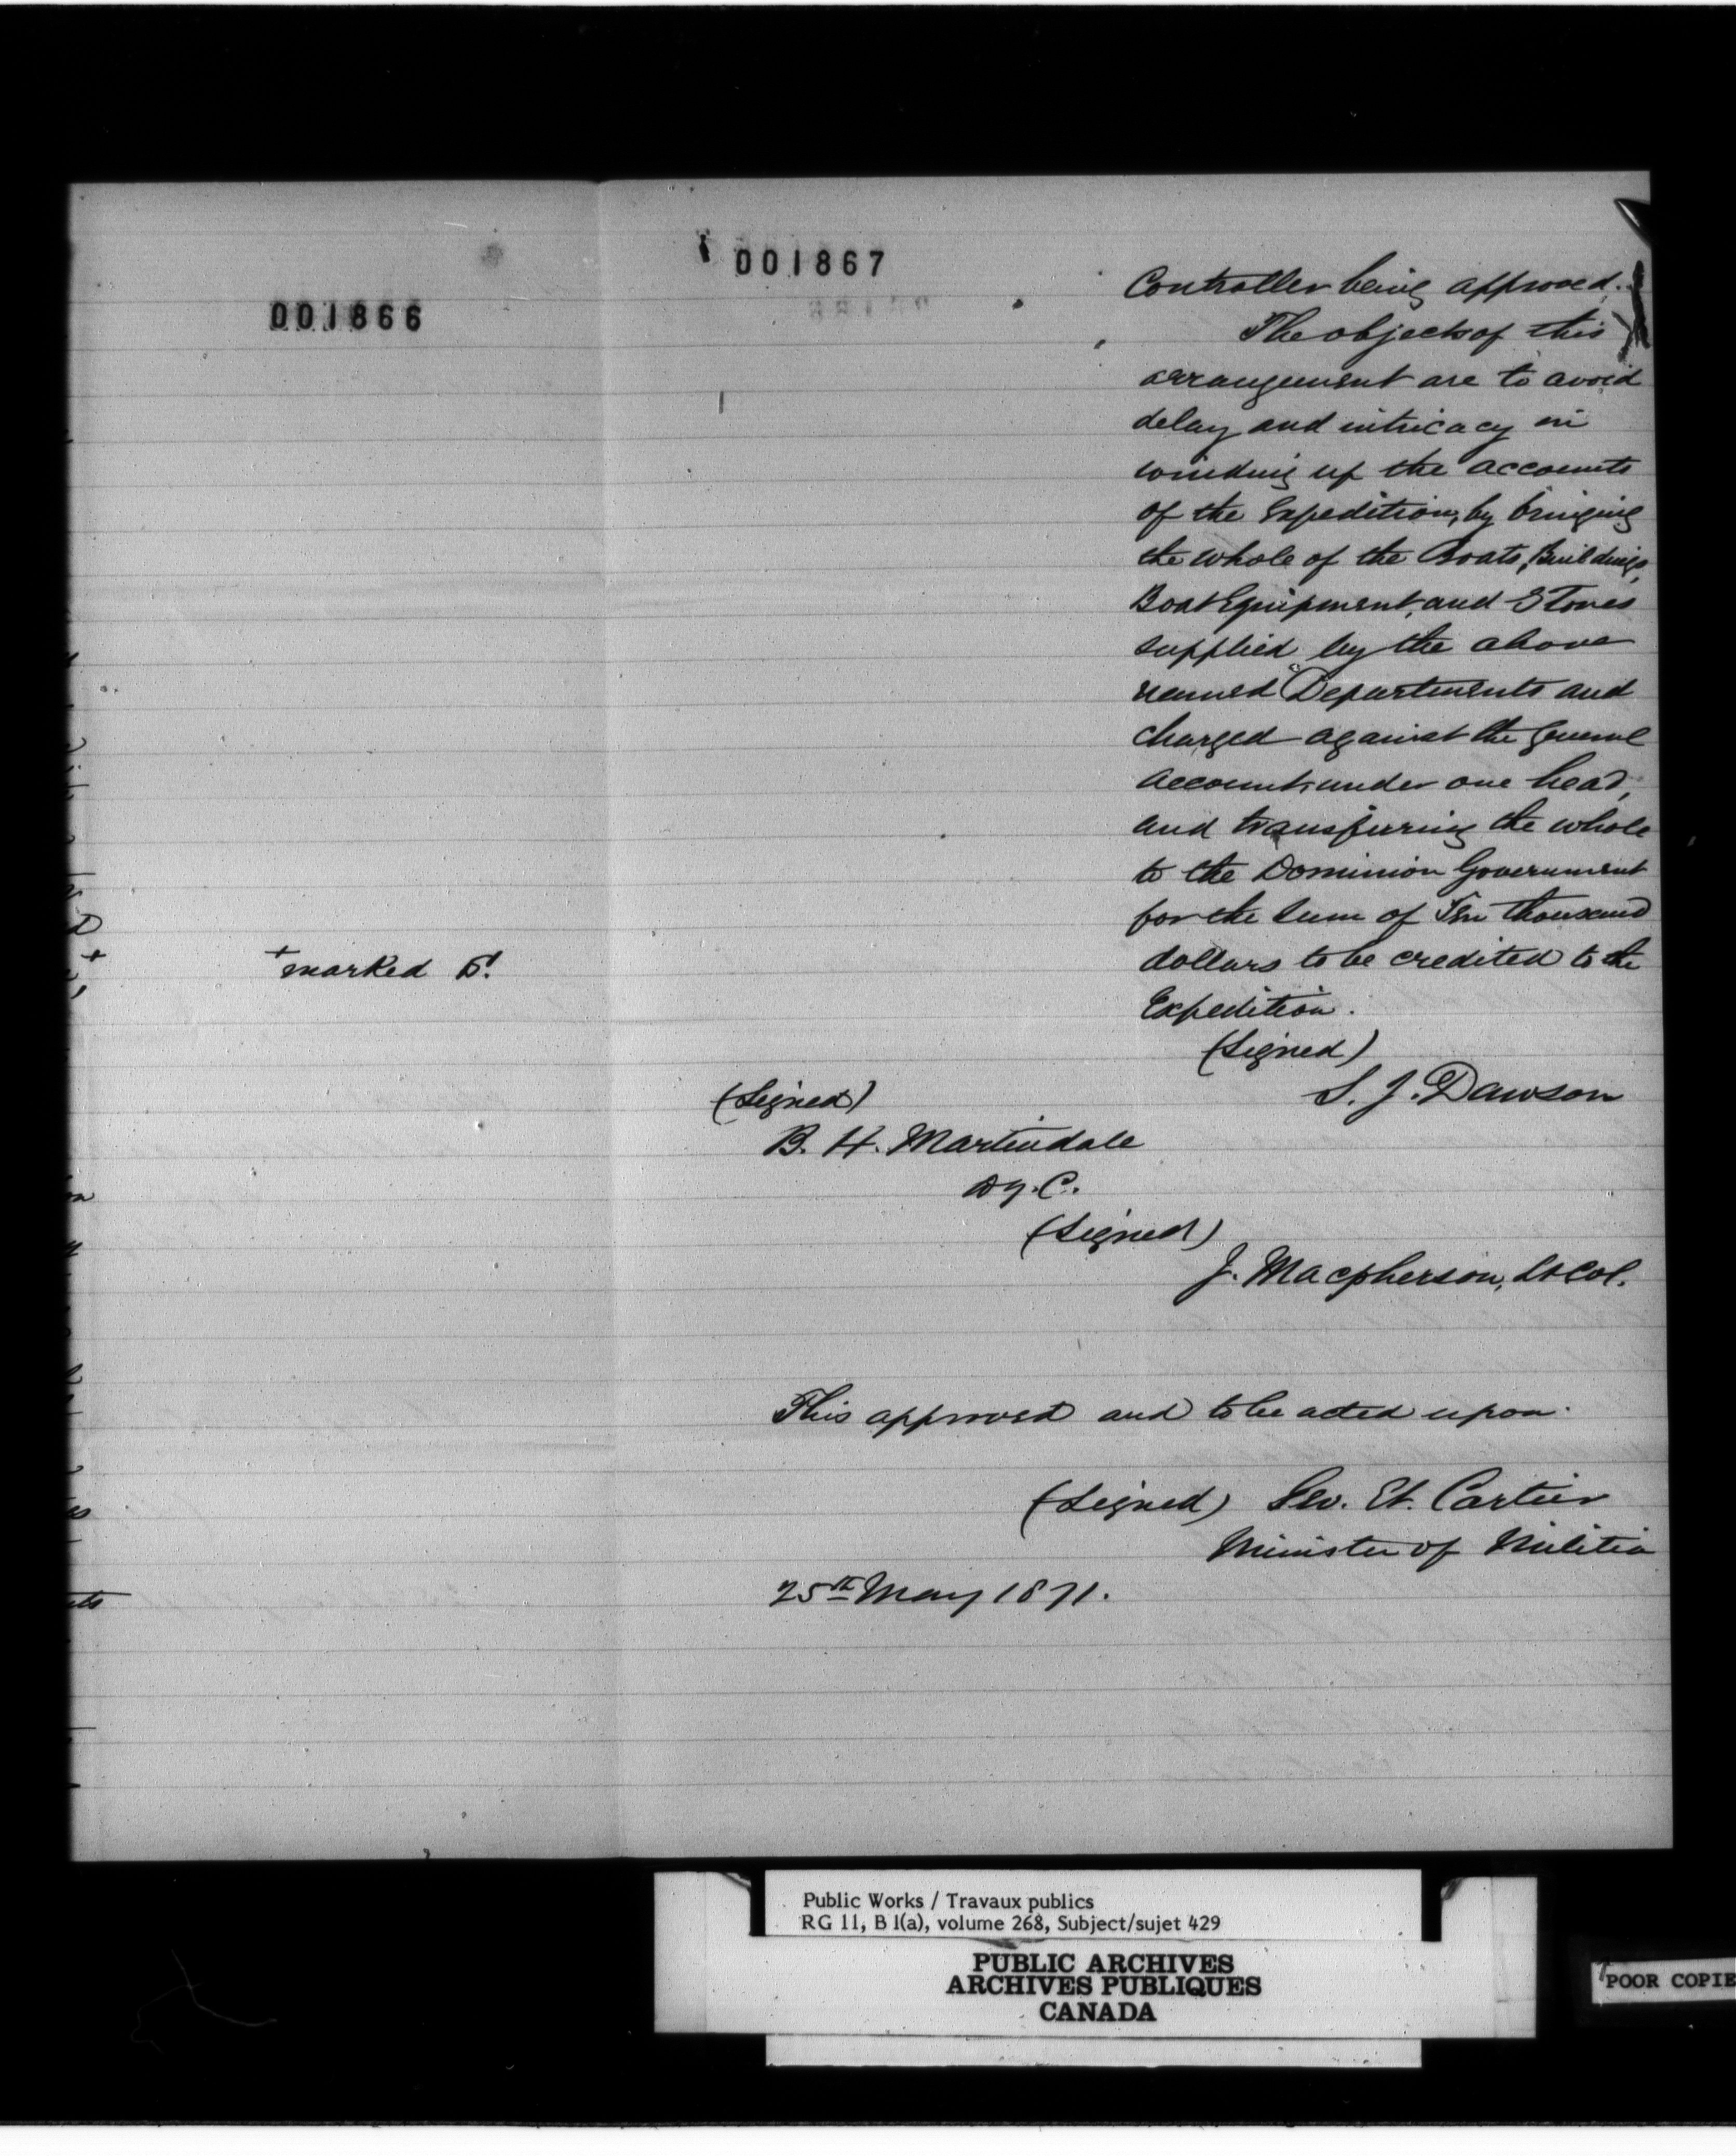 001866
+marked
001867
Controller being approved.
The objects of this
arrangement are to avoid
delay and intricacy in
winding up the accounts
of the Expedition, by bringing
the whole of the Boats, Buildings,
Boat Equipment, and Stores
supplied by the above
named Departments and
charged against the general
account, under one head,
and transferring the whole
to the Dominion Government
for the sum of Ten thousand
dollars to be credited to the
Expedition.
(Signed)
S. J. Dawson
(Signed)
B. H. Martindale
Dy. C.
(Signed)
J. Macpherson, Lt Col.
This approved and to be acted upon.
(Signed) Geo. Et. Cartier
Minister of Militia
25th May 1871.
Public Works / Travaux publics
RG 11, B 1(a), volume 268, Subject/sujet 429
PUBLIC ARCHIVES
ARCHIVES PUBLIQUES
CANADA
POOR COPIE